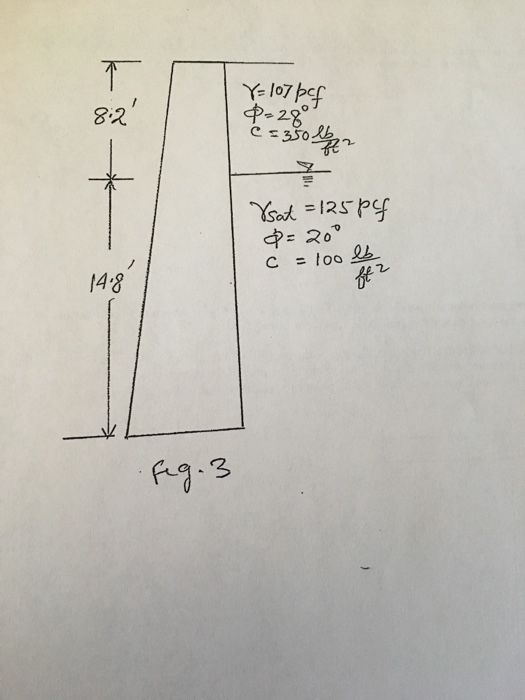 8.2'
γ=107 pcf
φ=28°
c=350 lb/ft²
γsat = 125 pcf
φ= 20°
c = 100 lb/ft²
14.8'
fig. 3